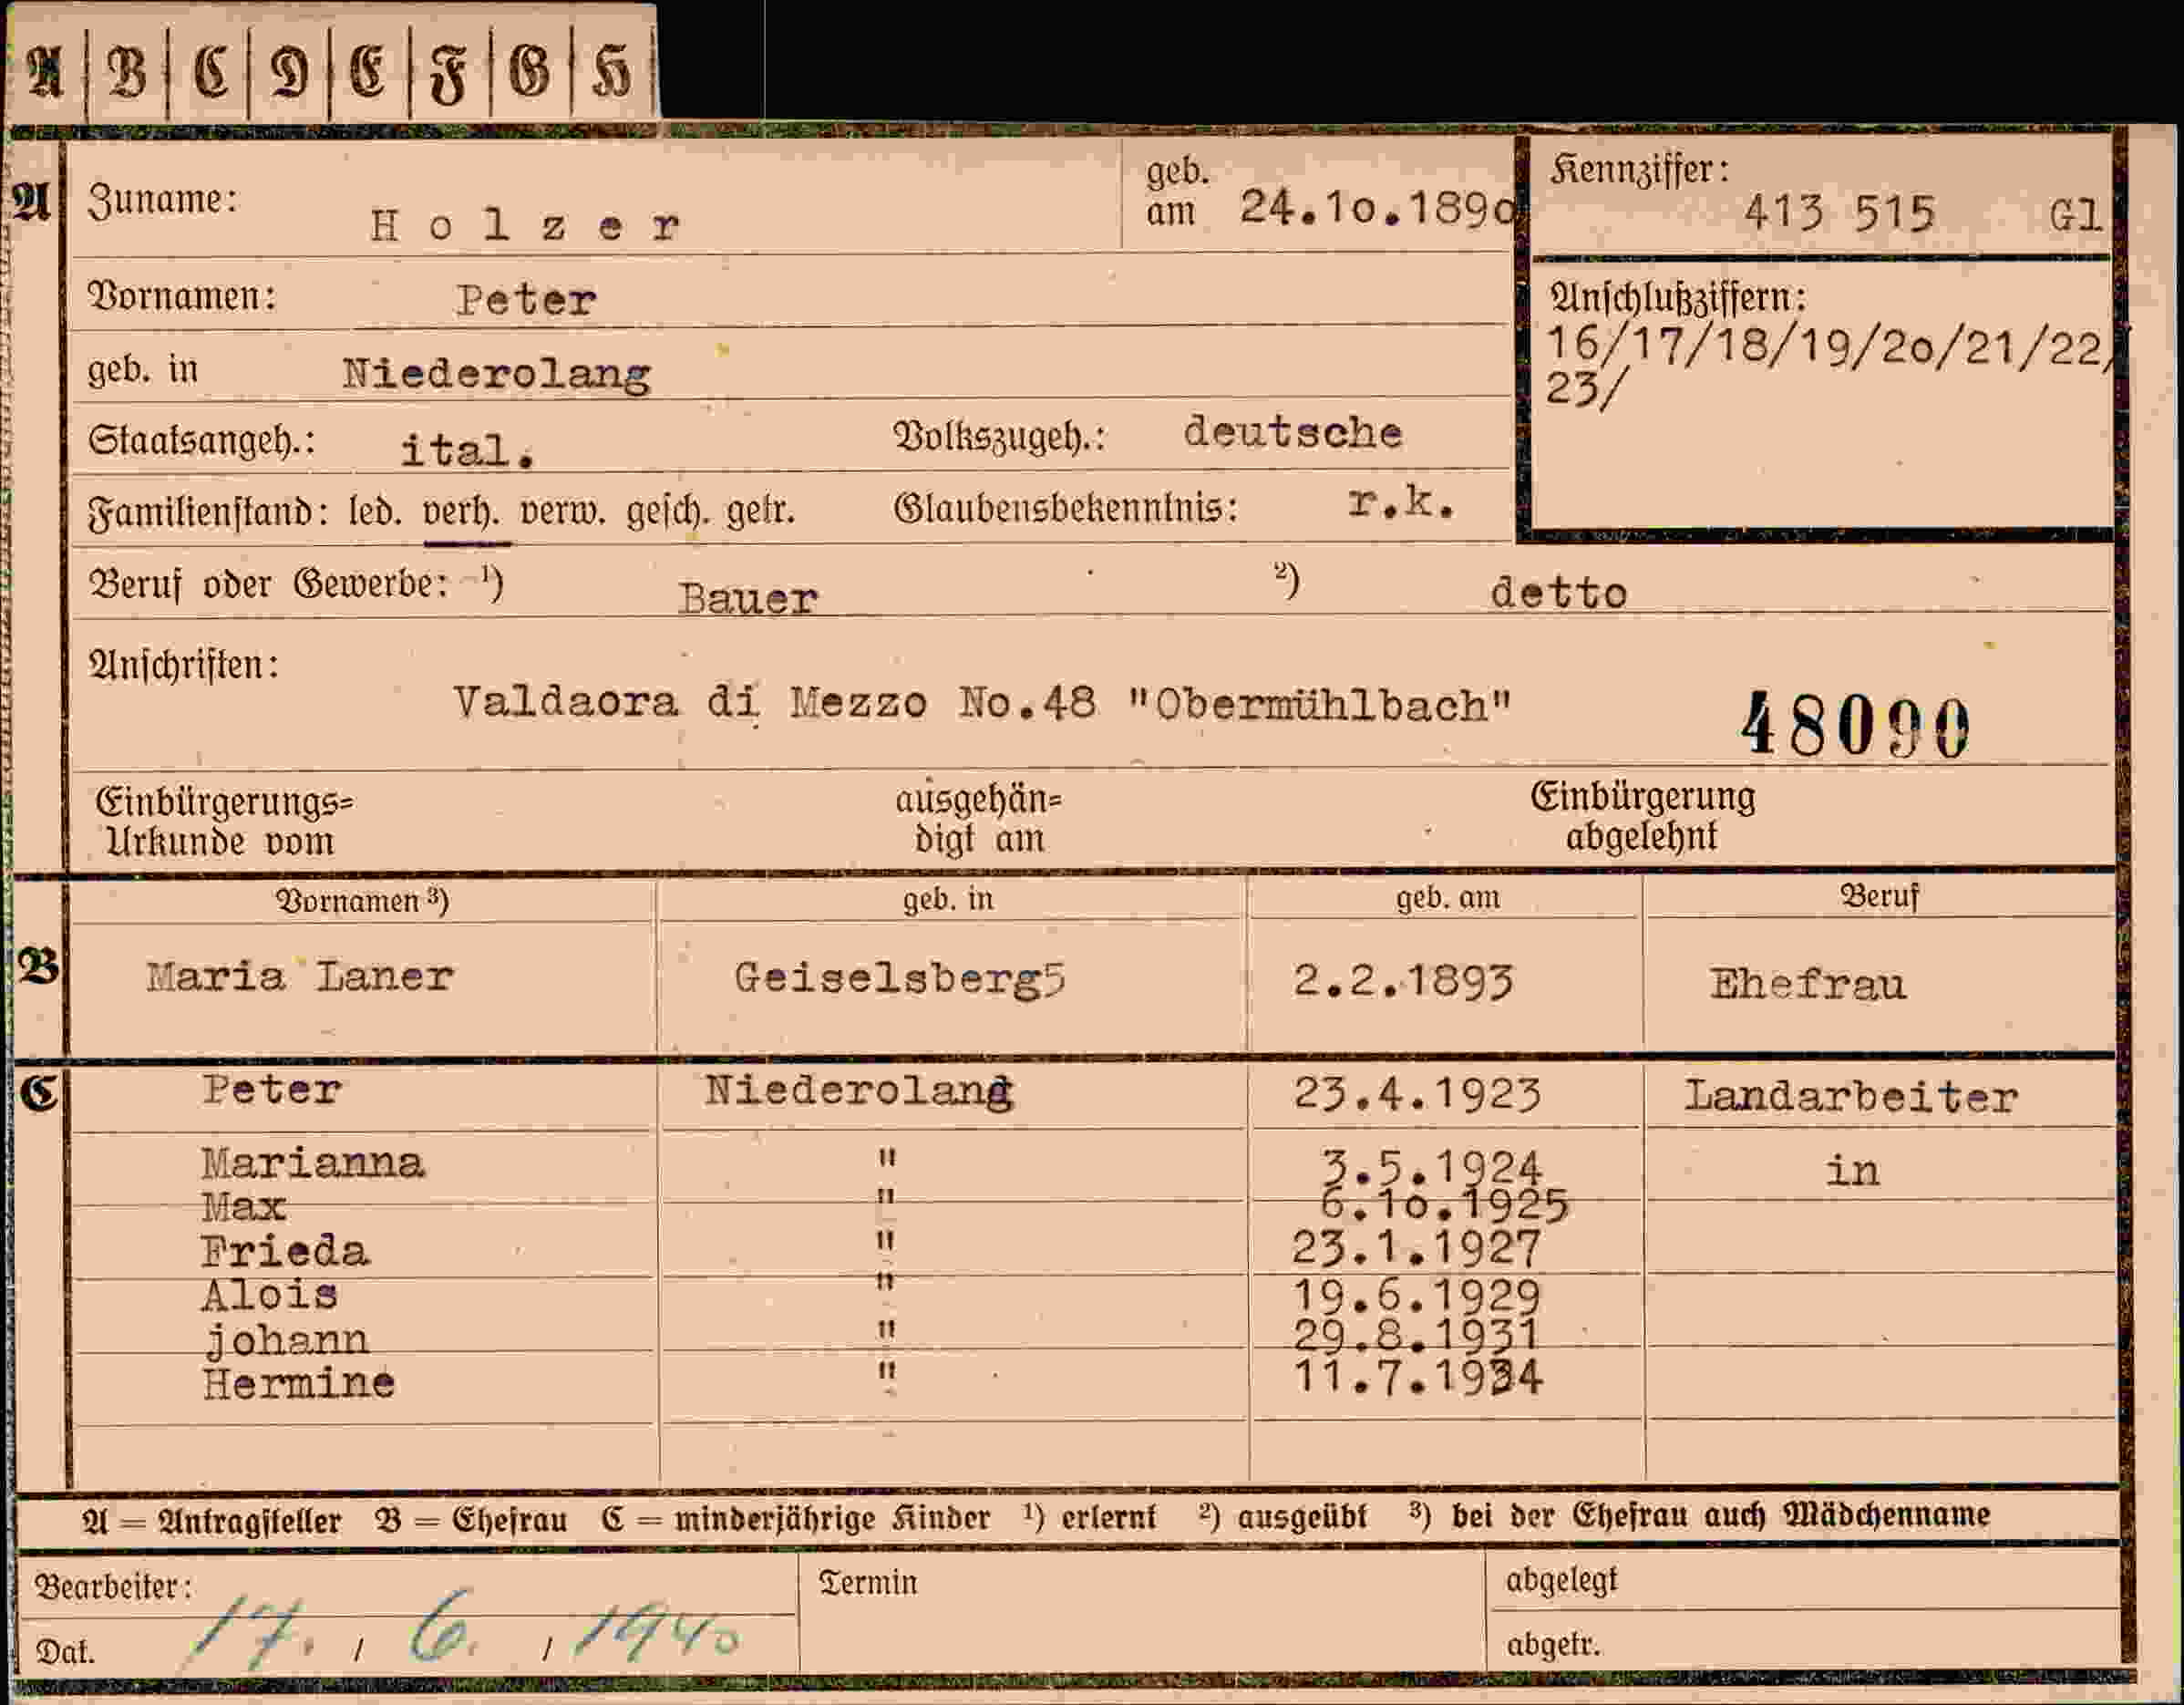 A | B | C | D | E | F | G | H
A Zuname: Holzer geb. am 24.1o.189o Kennziffer: 413 515 Gl
Vornamen: Peter Anschlußziffern: 16/17/18/19/2o/21/22/
geb. in Niederolang 23/
Staatsangeh.: ital. Volkszugeh.: deutsche
Familienstand: led. verh. verw. gesch. getr. Glaubensbekenntnis: r.k.
Beruf oder Gewerbe: ¹) Bauer ²) detto
Anschriften:
Valdaora di Mezzo No.48 "Obermühlbach" 48090
Einbürgerungs= ausgehän= Einbürgerung
Urkunde vom digt am abgelehnt
Vornamen ³) geb. in geb. am Beruf
B Maria Laner Geiselsberg5 2.2.1893 Ehefrau
C Peter Niederolang 23.4.1923 Landarbeiter
Marianna " 3.5.1924 in
Max " 6.1o.1925
Frieda " 23.1.1927
Alois " 19.6.1929
johann " 29.8.1931
Hermine " 11.7.1934
A = Antragsteller B = Ehefrau C = minderjährige Kinder ¹) erlernt ²) ausgeübt ³) bei der Ehefrau auch Mädchenname
Bearbeiter: Termin abgelegt
Dat. 17. / 6. / 1940 abgetr.